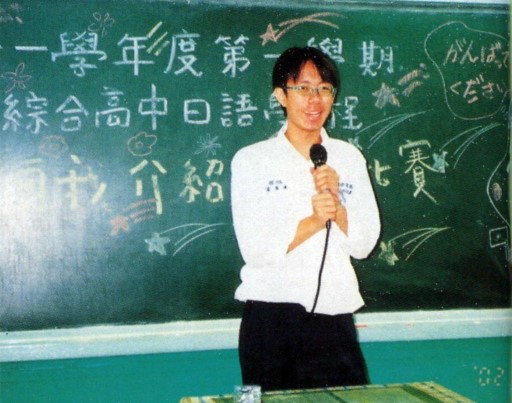 一學年度第一學期
綜合高中日語學程
自我介紹比賽
がんばって
ください
'02